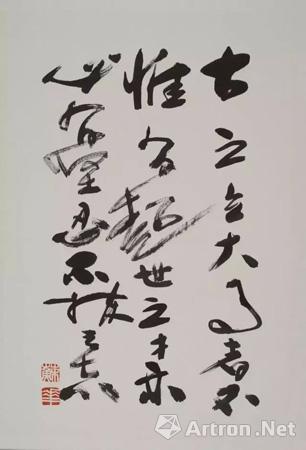 古之立大事者不
惟有超世之才亦
必有坚忍不拔之志
Artron.Net